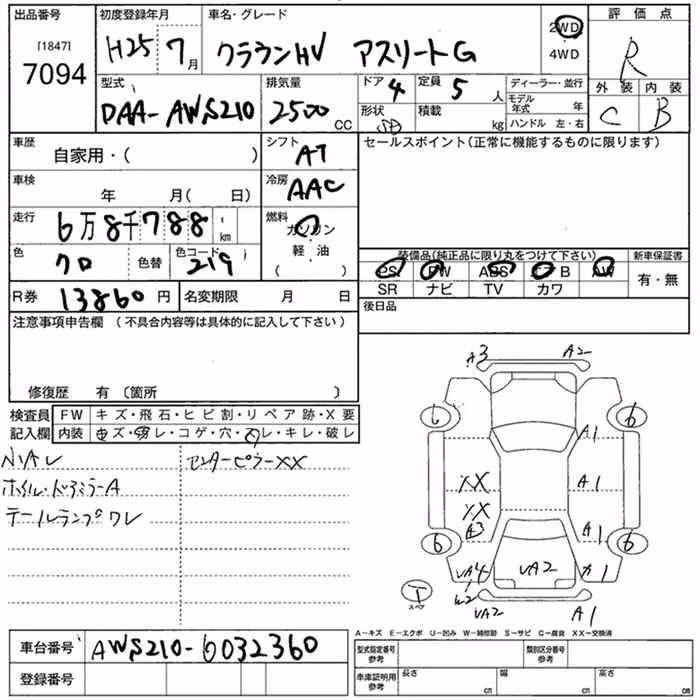 出品番号 初度登録年月 車名・グレード 評価点
[1847]
7094
H25 7月 クラウンHV アスリートG
2WD
4WD
R
型式 排気量 ドア 4 定員 5人 ディーラー・並行
DAA-AWS210 2500cc
形状 SD 積載 kg
モデル年式 年
ハンドル 左・右
外装 内装
C B
車歴 自家用・( ) シフト AT
セールスポイント(正常に機能するものに限ります)
車検 年 月( 日) 冷房 AAC
走行 6万8千788 km
燃料 ガソリン
軽・油
( )
色 クロ 色替 色コード 219
装備品(純正品に限り丸をつけて下さい) 新車保証書
PS PW ABS エアB AW
SR ナビ TV カワ
有・無
R券 13860円 名変期限 月 日
後日品
注意事項申告欄 (不具合内容等は具体的に記入して下さい)
修復歴 有 〔箇所 〕
検査員 FW キズ・飛石・ヒビ割・リペア跡・X要
記入欄 内装 キズ・レ・コゲ・穴・レ・キレ・破レ
ホイル・ドアミラーA
センターピラーXX
テールランプワレ
A3 A2
6 6
A1
XX A1
XX
A3 A1
6 6
VA4 VA2 A1
W2
VA2 A1
T
スペア
A-キズ E-エクボ U-凹み W-補修跡 S-サビ C-腐食 XX-交換済
車台番号 AWS210-6032360
登録番号
型式指定番号 参考 類別区分番号 参考
車庫証明用 参考 長さ cm 幅 cm 高さ cm